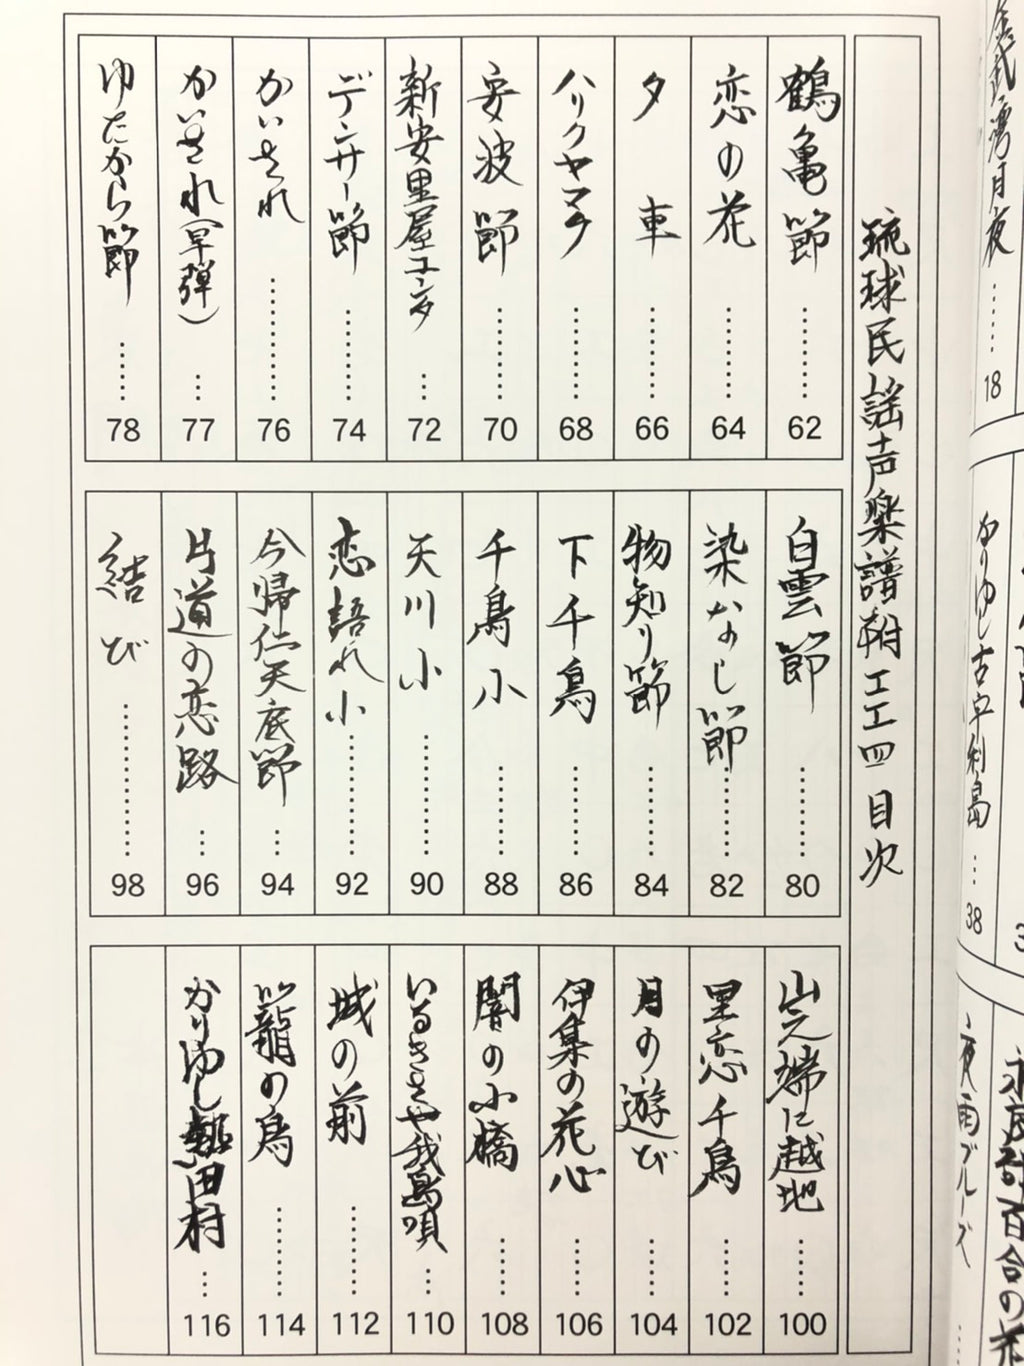 琉球民謡声楽譜附工工四 目次
鶴亀節 ……… 62
恋の花 ……… 64
夕車 ……… 66
ハリクヤマク ……… 68
安波節 ……… 70
新安里屋ユンタ … 72
デンサー節 ……… 74
かいされ ……… 76
かいされ(早弾) … 77
ゆたか節 …… 78
白雲節 ……… 80
染なし節 ……… 82
物知り節 ……… 84
下千鳥 ……… 86
千鳥小 ……… 88
天川小 ……… 90
恋語れ小 ……… 92
今帰仁天底節 … 94
片道の恋路 … 96
結び ……… 98
山之端に越地 …… 100
里恋千鳥 …… 102
月の遊び …… 104
伊集の花心 …… 106
闇の小橋 …… 108
我島唄 … 110
城の前 ……… 112
籠の鳥 ……… 114
かりゆし熱田村 … 116
湾月夜 …… 18
かりゆし古宇利島 … 38
夜雨ブルース
永良部百合の花